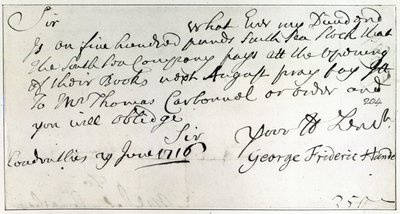 Sir What Ever my Dividend
Is on five hundred pounds South Sea Stock that
the South Sea Company pays att the opening
of their Books next August pray pay
To Mr Thomas Carbonnel or order and
you will obblidge
Sir Your
London this 29 June 1716
George Frideric Hande